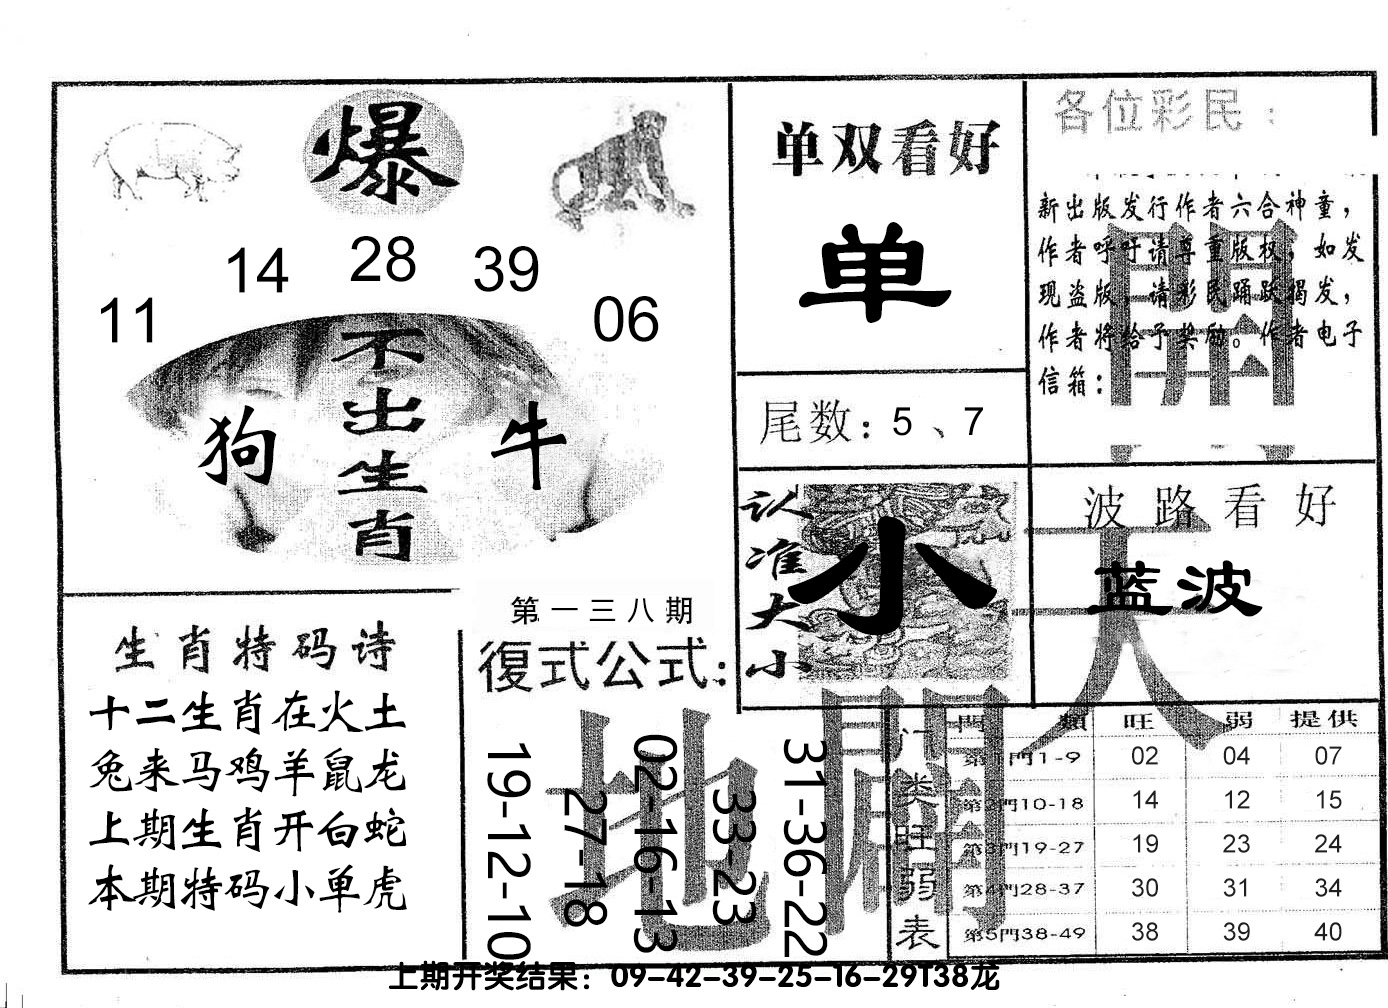 爆
11 14 28 39 06
不出生肖
狗 牛
单双看好
单
尾数：5、7
各位彩民：
新出版发行作者六合神童，
作者呼吁请尊重版权，如发
现盗版，请彩民踊跃揭发，
作者将给予奖励。作者电子
信箱：
認准大小
小
波路看好
蓝波
生肖特码诗
十二生肖在火土
兔来马鸡羊鼠龙
上期生肖开白蛇
本期特码小单虎
第一三八期
復式公式：
19-12-10
27-18
02-16-13
33-23
31-36-22
天
地
開
门类旺弱表
門類 旺 弱 提供
第1門1-9 02 04 07
第2門10-18 14 12 15
第3門19-27 19 23 24
第4門28-37 30 31 34
第5門38-49 38 39 40
上期开奖结果：09-42-39-25-16-29T38龙